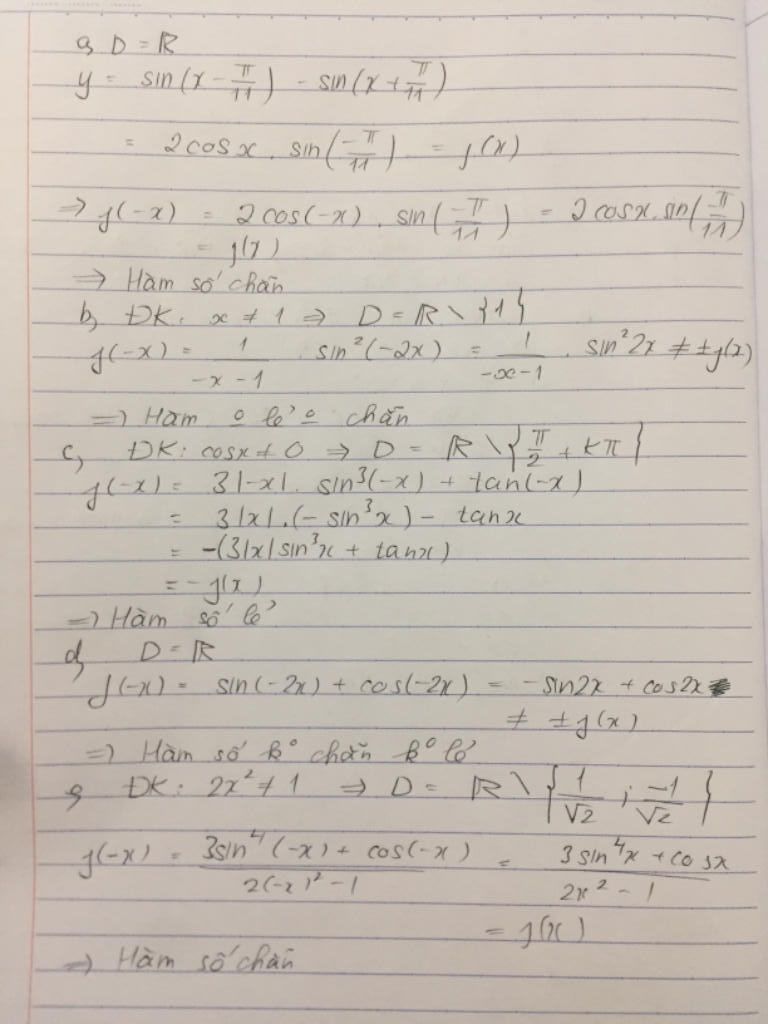 a, D = ℝ
y = sin(x - π/11) - sin(x + π/11)
= 2cosx . sin(-π/11) = f(x)
⇒ f(-x) = 2cos(-x) . sin(-π/11) = 2cosx.sin(-π/11)
= f(x)
⇒ Hàm số chẵn
b, ĐK: x ≠ 1 ⇒ D = ℝ \ {1}
f(-x) = 1/(-x-1) . sin²(-2x) = 1/(-x-1) . sin²2x ≠ ±f(x)
⇒ Hàm o lẻ o chẵn
c, ĐK: cosx ≠ 0 ⇒ D = ℝ \ {π/2 + kπ}
f(-x) = 3|-x|. sin³(-x) + tan(-x)
= 3|x|.(-sin³x) - tanx
= -(3|x|sin³x + tanx)
= -f(x)
⇒ Hàm số lẻ
d, D = ℝ
f(-x) = sin(-2x) + cos(-2x) = -sin2x + cos2x
≠ ±f(x)
⇒ Hàm số k° chẵn k° lẻ
e, ĐK: 2x² ≠ 1 ⇒ D = ℝ \ {1/√2 ; -1/√2}
f(-x) = (3sin⁴(-x) + cos(-x))/(2(-x)² - 1) = (3sin⁴x + cosx)/(2x² - 1)
= f(x)
⇒ Hàm số chẵn